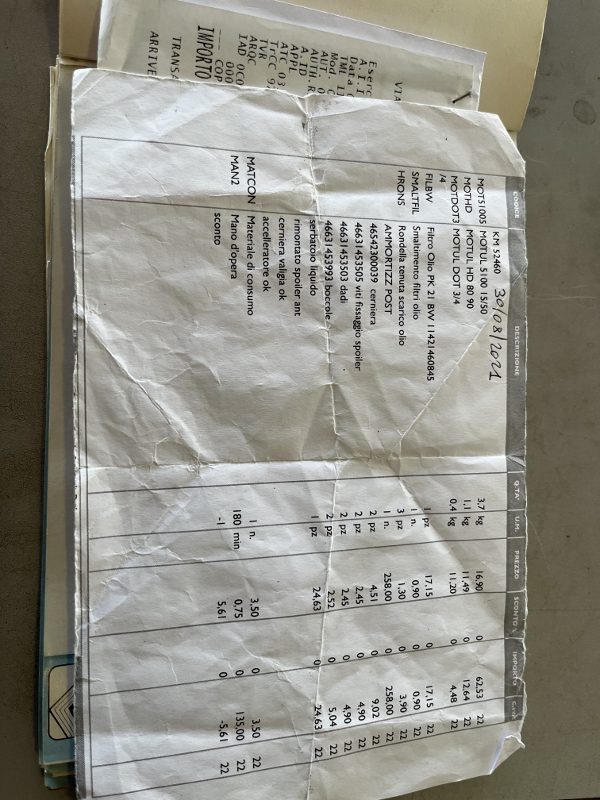 VIA
Eserc
A.I.I
Data
TML 11
Mod.
AUT.
AUTH.R
A.ID
APPL
ATC 03
TrCC 9
TVR
ARQC
IAD 0C0
000
--- COP
IMPORTO
TRANSA
ARRIVE
CODICE DESCRIZIONE Q.TA' U.M. PREZZO SCONTO IMPORTO
KM 52460 30/08/2021
MOT51005 MOTUL 5100 15/50 3,7 kg 16,90 0 62,53 22
MOTHD MOTUL HD 80 90 1,1 kg 11,49 0 12,64 22
MOTDOT3 MOTUL DOT 3/4 0,4 kg 11,20 0 4,48 22
/4
FILBW Filtro Olio PK 21 BW 11421460845 1 pz 17,15 0 17,15 22
SMALTFIL Smaltimento filtri olio 1 n. 0,90 0 0,90 22
HRONS Rondella tenuta scarico olio 3 pz 1,30 0 3,90 22
AMMORTIZZ POST 1 n. 258,00 0 258,00 22
46542300039 cerniera 2 pz 4,51 0 9,02 22
46631453505 viti fissaggio spoiler 2 pz 2,45 0 4,90 22
46631453503 dadi 2 pz 2,45 0 4,90 22
46631453993 boccole 2 pz 2,52 0 5,04 22
serbatoio liquido 1 pz 24,63 0 24,63 22
rimontato spoiler ant
cerniera valigia ok
accelleratore ok
MATCON Materiale di consumo 1 n. 3,50 0 3,50 22
MAN2 Mano d'opera 180 min. 0,75 0 135,00 22
sconto -1 5,61 0 -5,61 22